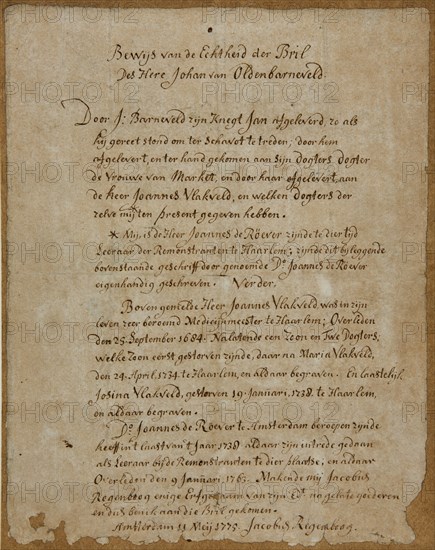 Bewijs van de Echtheid der Bril
Des Here Johan van Oldenbarneveld.
Door J: Barneveld zijn Knegt Jan afgeleverd, zo als
hij gereet stond om ter Schavot te treden; door hem
afgelevert, en ter hand gekomen aan sijn dogters, dogter
de Vrouwe van Market, en door haar afgelevert, aan
de heer Joannes Vlakveld, en welken dogters der
zelve mij ten present gegeven hebben.
* Mij, is de Heer Joannes de Roever zijnde te dier tijd
Leeraar der Remonstranten te Haarlem; zijnde dit bijleggende
bovenstaande geschrift door genoemde Ds. Joannes de Roever
eigenhandig geschreven. Verder.
Boven gemelde Heer Joannes Vlakveld, was in zijn
leven zeer beroemd Medicijnmeester te Haarlem; Overleden
den 25 September 1684. Nalatende een Zoon en Twe Dogters;
welke Zoon eerst gestorven zijnde, daar na Maria Vlakveld,
den 24 April, 1734 te Haarlem, en aldaar begraven. En laastelijk
Josina Vlakveld, gestorven 19 Januarij, 1738. te Haarlem,
en aldaar begraven.
Ds. Joannes de Roever te Amsterdam beroepen zijnde
heeft in't laast van't Jaar 1738 aldaar zijn intrede gedaan
als Leeraar bij de Remonstranten te dier plaatse, en aldaar
Overleden den 9 Januarij, 176. Makende mij Jacobus
Regenboog enige Erfgenaam van zijn Ed. nagelate goederen
en dus ben ik aan die Bril gekomen.
Amsterdam 11 Meij 1775. Jacobus Regenboog.
PHOTO12